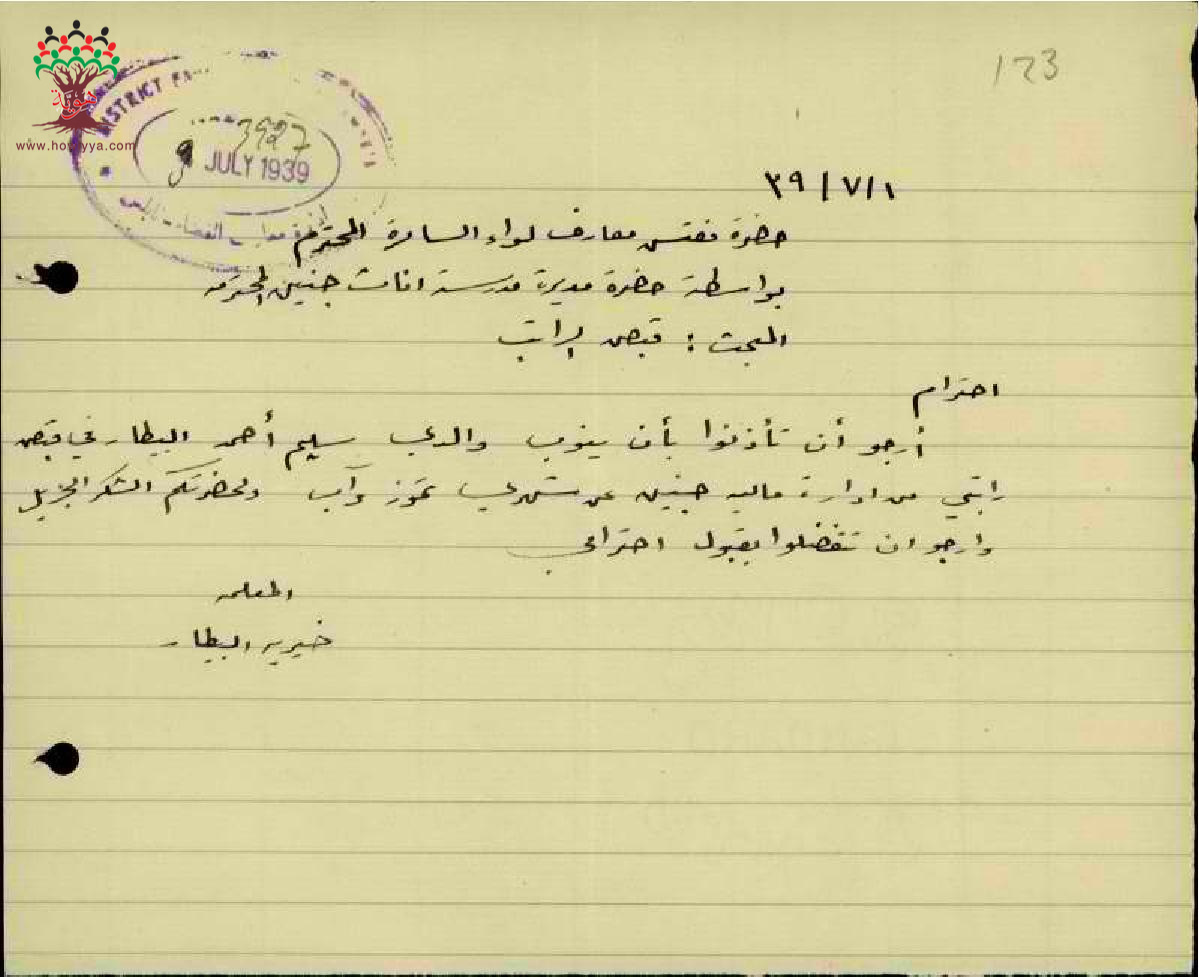 123
DISTRICT
3927
9 JULY 1939
هوية
www.howiyya.com
٣٩/٧/١
حضرة مفتش معارف لواء السامرة المحترم
بواسطة حضرة مديرة مدرسة اناث جنين المحترمه
المبحث : قبض الراتب
احترام
أرجو أن تأذنوا بأن ينوب والدي سليم أحمد البيطار في قبض
راتبي من ادارة ماليه جنين عن شهري تموز وآب ولحضرتكم الشكر الجزيل
وارجو ان تتفضلوا بقبول احترامي
المعلمه
خيريه البيطار